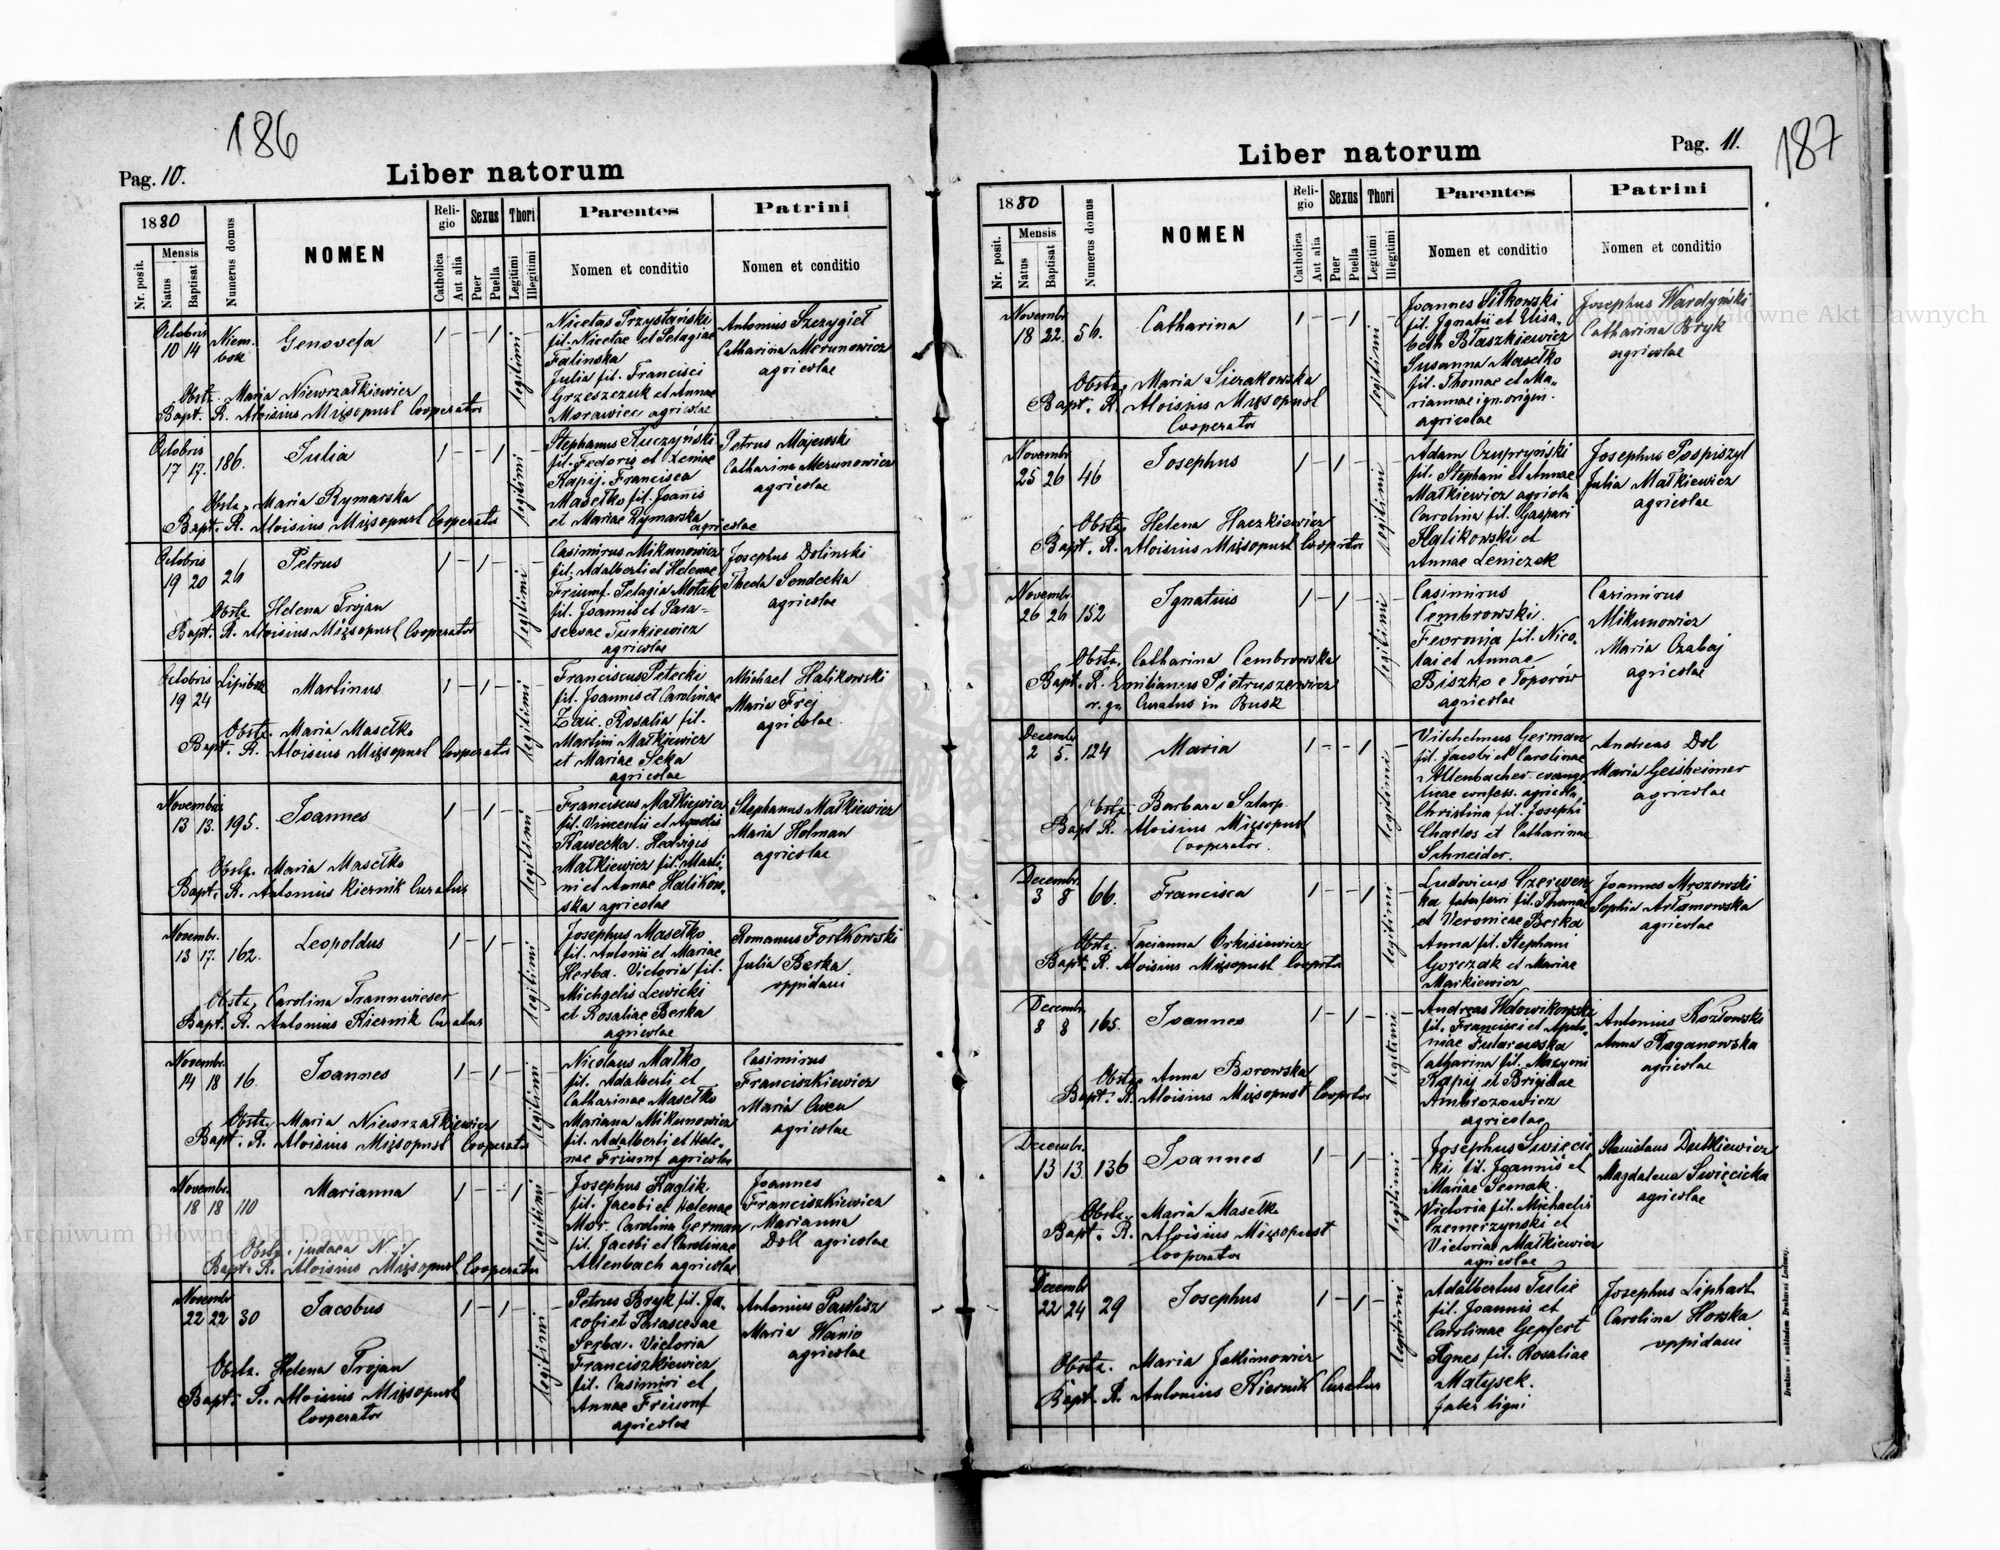 186
Pag. 10.
Liber natorum
1880
Nr. posit.
Mensis
Natus
Baptisat
Numerus domus
NOMEN
Religio
Catholica
Aut alia
Sexus
Puer
Puella
Thori
Legitimi
Illegitimi
Parentes
Nomen et conditio
Patrini
Nomen et conditio
Octobris
10 14
Genovefa
1 – – 1 –
legitimi
Nicetas Przystański
fil. Nicetae et Pelagiae
Falinska
Julia fil. Francisci
Grzeszczuk et Annae
Morawiec agricolae
Antonius Szczygieł
Catharina Merunowicz
agricolae
Obstz. Maria Niewrzałkiewicz
Bapt. R. Aloisius Mięsopust Cooperator
Octobris
17 17. 186.
Julia
1 – – 1 –
legitimi
Stephanus Kuczyński
fil. Fedoris et Xeniae
Kapij. Francisca
Masełko fil. Joanis
et Mariae Rymarska
agricolae
Petrus Majewski
Catharina Merunowicz
agricolae
Obstz. Maria Rymarska
Bapt. R. Aloisius Mięsopust Cooperator
Octobris
19 20 26
Petrus
1 – 1 – –
legitimi
Casimirus Mikunowicz
fil. Adalberti et Helenae
Friumf. Pelagia Motak
fil. Joannis et Para-
scevae Turkiewicz
agricolae
Josephus Dolinski
Thecla Sendecka
agricolae
Obstz. Helena Trojan
Bapt. R. Aloisius Mięsopust Cooperator
Octobris
19 24
Martinus
1 – 1 – –
legitimi
Franciscus Petecki
fil. Joannis et Carolinae
Zajac. Rosalia fil.
Martini Małkiewicz
et Mariae Seka
agricolae
Michael Halikowski
Maria Frej
agricolae
Obstz. Maria Masełko
Bapt. R. Aloisius Mięsopust Cooperator
Novembris
13 13. 195.
Joannes
1 – 1 – –
legitimi
Franciscus Małkiewicz
fil. Vincentii et Agnetis
Kawecka. Hedvigis
Małkiewicz fil. Marti-
ni et Annae Halikow-
ska agricolae
Stephanus Małkiewicz
Maria Holman
agricolae
Obstz. Maria Masełko
Bapt. R. Antonius Kiernik Curatus
Novembr.
13 17. 162.
Leopoldus
1 – 1 – –
legitimi
Josephus Masełko
fil. Antonii et Mariae
Herba. Victoria fil.
Michaelis Lewicki
et Rosaliae Berka
agricolae
Romanus Forlkowski
Julia Berka
oppidani
Obstz. Carolina Trannwieser
Bapt. R. Antonius Kiernik Curatus
Novembr.
14 18 16.
Joannes
1 – 1 – –
legitimi
Nicolaus Małko
fil. Adalberti et
Catharinae Masełko
Marianna Mikunowicz
fil. Adalberti et Hele-
nae Friumf agricolae
Casimirus
Franciszkiewicz
Maria
agricolae
Obstz. Maria Niewrzałkiewicz
Bapt. R. Aloisius Mięsopust Cooperator
Novembr.
18 18 110
Marianna
1 – – 1 –
legitimi
Josephus Haglik.
fil. Jacobi et Helenae
Mor. Carolina German
fil. Jacobi et Carolinae
Altenbach agricolae
Joannes
Franciszkiewicz
Marianna
Doll agricolae
Obstz. judaea N.
Bapt. R. Aloisius Mięsopust Cooperator
Novembr
22 22 30
Jacobus
1 – 1 – –
legitimi
Petrus Bryk fil. Ja-
cobi et Parascevae
Serba. Victoria
Franciszkiewicz
fil. Casimiri et
Annae Friumf
agricolae
Antonius Pawlisz
Maria Wanio
agricolae
Obstz. Helena Trojan
Bapt. R. Aloisius Mięsopust
Cooperator
187
Pag. 11.
Liber natorum
1880
Nr. posit.
Mensis
Natus
Baptisat
Numerus domus
NOMEN
Religio
Catholica
Aut alia
Sexus
Puer
Puella
Thori
Legitimi
Illegitimi
Parentes
Nomen et conditio
Patrini
Nomen et conditio
Novembr
18 22. 56.
Catharina
1 – – 1 –
legitimi
Joannes Sitkowski
fil. Ignatii et Elisa-
beth Błaszkiewicz
Susanna Masełko
fil. Thomae et Ma-
riannae ign. origin.
agricolae
Josephus Wardyński
Catharina Bryk
agricolae
Obstz. Maria Sierakowska
Bapt. R. Aloisius Mięsopust
Cooperator
Novembr
25 26 46
Josephus
1 – 1 – –
legitimi
Adam Czupryński
fil. Stephani et Annae
Małkiewicz agricola
Carolina fil. Gaspari
Halikowski et
Annae Leniczek
Josephus Pospiszyl
Julia Małkiewicz
agricolae
Obstz. Helena Haczkiewicz
Bapt. R. Aloisius Mięsopust Cooprtor
Novembr.
26 26 152
Ignatius
1 – 1 – –
legitimi
Casimirus
Cembrowski.
Fevronia fil. Nico-
lai et Annae
Biszko e Toporów
agricolae
Casimirus
Mikunowicz
Maria Czabaj
agricolae
Obstz. Catharina Cembrowska
Bapt. R. Emilianus Pietruszewicz
r. gr. Curatus in Busk
Decembr.
2 5. 124
Maria
1 – – 1 –
legitimi
Vilhelmus German
fil. Jacobi et Carolinae
Altenbacher evange-
licae confess. agricola
Christina fil. Josephi
Charlos et Catharinae
Schneider.
Andreas Dol
Maria Geisheimer
agricolae
Obstz. Barbara Sztarp.
Bapt R. Aloisius Mięsopust
Cooperator.
Decembr.
3 8 66.
Francisca
1 – – 1 –
legitimi
Ludovicus Czerwen-
ka faber ferri fil. Thomae
et Veronicae Berka
Anna fil. Stephani
Gorczak et Mariae
Markiewicz
Joannes Mrozowski
Sophia Artamowska
agricolae
Obstz. Tacianna Orkisiewicz
Bapt. R. Aloisius Mięsopust Cooprtor
Decembr.
8 8 165.
Joannes
1 – 1 – –
legitimi
Andreas Wdowikowski
fil. Francisci et Apolo-
niae
Catharina fil. Maxymi
Kapij et Brigidae
Ambrozowicz
agricolae
Antonius Kozłowski
Anna Kaganowska
agricolae
Obstz. Anna Borowska
Bapt. R. Aloisius Mięsopust Cooprtor
Decembr.
13 13. 136
Joannes
1 – 1 – –
legitimi
Josephus Swięcic
ki, fil. Joannis et
Mariae Semak.
Victoria fil. Michaelis
Czemerzynski et
Victoriae Małkiewicz
agricolae
Stanislaus Dutkiewicz
Magdalena Swięcicka
agricolae
Obstz. Maria Masełko
Bapt. R. Aloisius Mięsopust
Cooperator
Decembr
22 24 29
Josephus
1 – 1 – –
legitimi
Adalbertus Tulie
fil. Joannis et
Carolinae Gepfert
Agnes fil. Rosaliae
Matysek.
faber ligni
Josephus Liphart
Carolina Horska
oppidani
Obstz. Maria Jakimowicz
Bapt. R. Antonius Kiernik Curatus
Archiwum Główne Akt Dawnych
Archiwum Główne Akt Dawnych